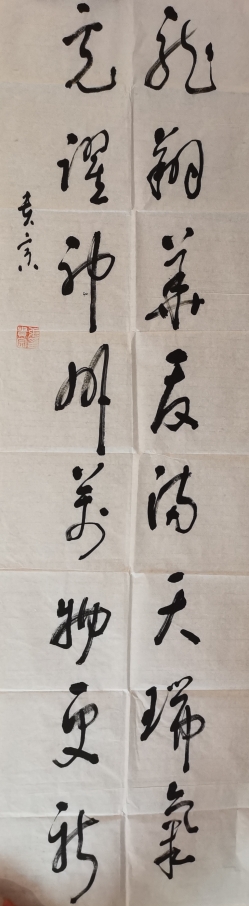 龍翔華夏满天瑞氣
虎躍神州萬物更新